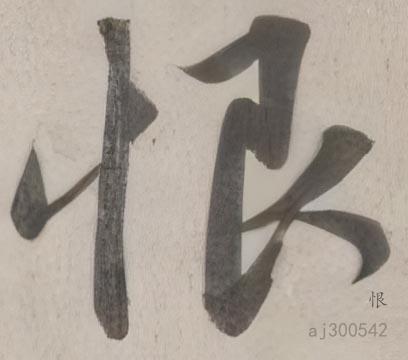 恨
恨
aj300542